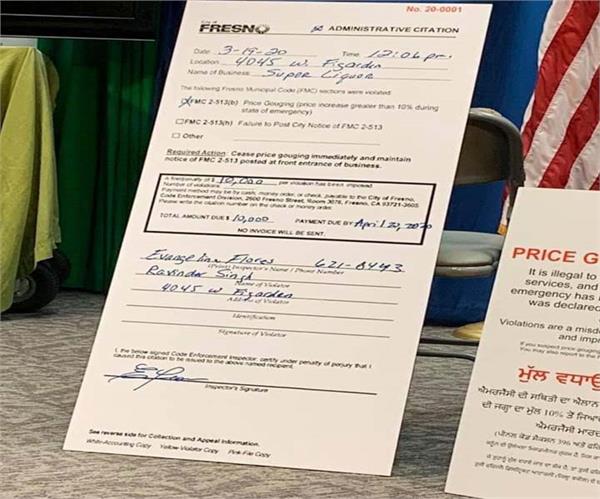 No. 20-0001
City of
FRESNO
ADMINISTRATIVE CITATION
Date 3-19-20 Time 12:06 pm.
Location 4045 W. Figarden
Name of Business Super Liquor
The following Fresno Municipal Code (FMC) sections were violated:
FMC 2-513(b) Price Gouging (price increase greater than 10% during
state of emergency)
FMC 2-513(h) Failure to Post City Notice of FMC 2-513
Other
Required Action: Cease price gouging immediately and maintain
notice of FMC 2-513 posted at front entrance of business.
A fine/penalty of $ 10,000 per violation has been imposed.
Number of violations
Payment method may be by cash, money order, or check, payable to the City of Fresno,
Code Enforcement Division, 2600 Fresno Street, Room 3076, Fresno, CA 93721-3605.
Please write the citation number on the check or money order.
TOTAL AMOUNT DUE $ 10,000 PAYMENT DUE BY April 20, 2020
NO INVOICE WILL BE SENT.
Evangelina Flores 621-8443
(Print) Inspector's Name / Phone Number
Ravinder Singh
Name of Violator
4045 W Figarden
Address of Violator
Identification
Signature of Violator
I, the below signed Code Enforcement Inspector, certify under penalty of perjury that I
caused this citation to be issued to the above named recipient.
Inspector's Signature
See reverse side for Collection and Appeal Information.
White-Accounting Copy Yellow-Violator Copy Pink-File Copy
PRICE G
It is illegal to
services, and
emergency has
was declared
Violations are a misd
and impr
If you suspect price gouging
You may also report to the
ਮੁੱਲ ਵਧਾਉ
ਐਮਰਜੈਂਸੀ ਦੀ ਸਥਿਤੀ ਦਾ ਐਲਾਨ
ਦੀ ਜਗ੍ਹਾ ਦਾ ਮੁੱਲ 10% ਤੋਂ ਜਿਆ
ਐਮਰਜੈਂਸੀ ਮਾਰਚ
(ਪੀਨਲ ਕੋਡ ਸੈਕਸ਼ਨ 396 ਅਤੇ ਫਰਿ